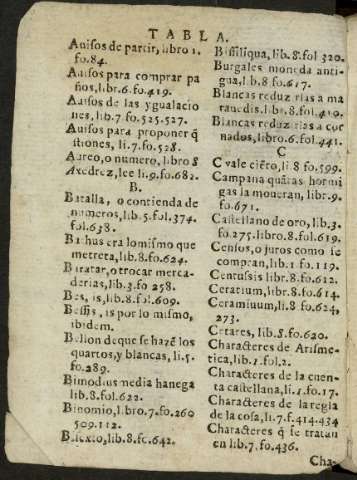 TABLA.
Auisos de partir, libro 1.
fo.84.
Auisos para comprar pa
ños, libr.6.fo.419.
Auisos de las ygualacio
nes, lib.7.fo.525.527.
Auisos para proponer q̃
stiones, li.7.fo.528.
Aureo, o numero, libro 8
Axedrez, lee li.9.fo.682.
B.
Batalla, o contienda de
numeros, lib.5.fol.374.
fol.638.
era lo mismo que
metreta, lib.8.fo.624.
Baratar, o trocar merca-
derias, lib.3.fo 258.
Bes, is, lib.8.fol.609.
Bessis, is por lo mismo,
ibidem.
Bellon de que se hazẽ los
quartos, y blancas, li.5.
fo.289.
Bimodius media hanega
lib.8.fol.622.
Binomio, libro.7.fo.260
509.112.
lib.8.fo.642.
Bissiliqua, lib.8.fol 320.
Burgales moneda anti-
gua, lib.8 fo.617.
Blancas reduzirlas a ma
rauedis.libr.8.fol.419.
Blancas reduzirlas a cor
nados, libro.6.fol.441.
C
C vale ciẽto, li 8 fo.599.
Campana quãtas hormi
gas la moueran, libr.9.
fo.671.
Castellano de oro, lib.3.
fo.275.libro.8.fol.619.
Censos, o juros como se
compran, lib.1.fo.119.
Centussis libr.8.fo.612.
Ceratium, libr.8.fo.614.
Ceramiuum, li.8 fo.624,
273.
Cetares, lib.8.fo.620.
Characteres de Arisme-
tica, lib.1.fol.2.
Characteres de la cuen-
ta castellana, li.1.fo.17.
Characteres de la regla
de la cosa, li.7.f.414.434
Characteres q̃ se tratan
en lib.7.fo.436.
Cha-